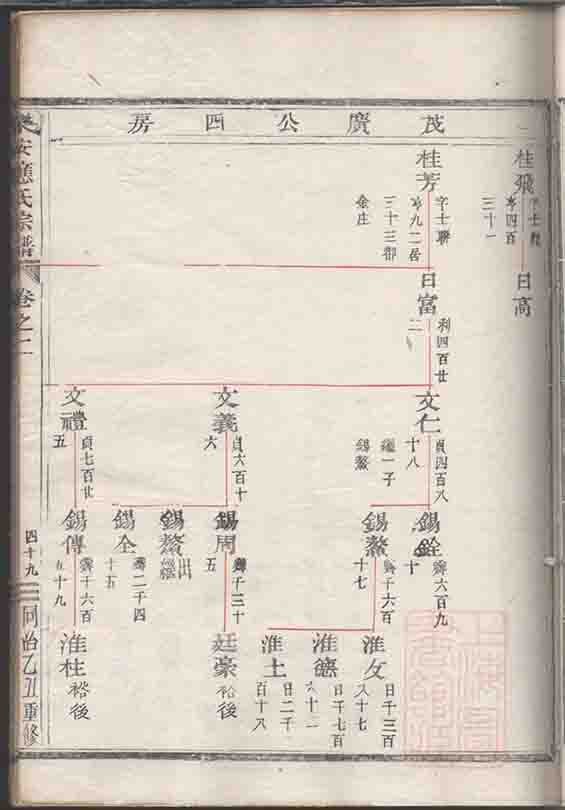 茂廣公四房
桂飛
三十一
日高
桂芳
字士聯
亨九二居
三十三都
金庄
日富
利四百廿
二
文仁
貞四百八
十八
繼一子
錫鰲
文義
貞六百十
六
文禮
貞七百廿
五
錫銓
霽六百九
十
錫鰲
霽千六百
十七
錫周
霽千三十
五
錫鰲
出
繼
錫全
霽二千四
十五
錫傳
霽千六百
五十九
淮女
日千三百
八十七
淮德
日千七百
六十一
淮土
日二千
百十八
廷豪
裕後
淮柱
裕後
安應氏宗譜
卷之二
四十九
同治乙丑重修